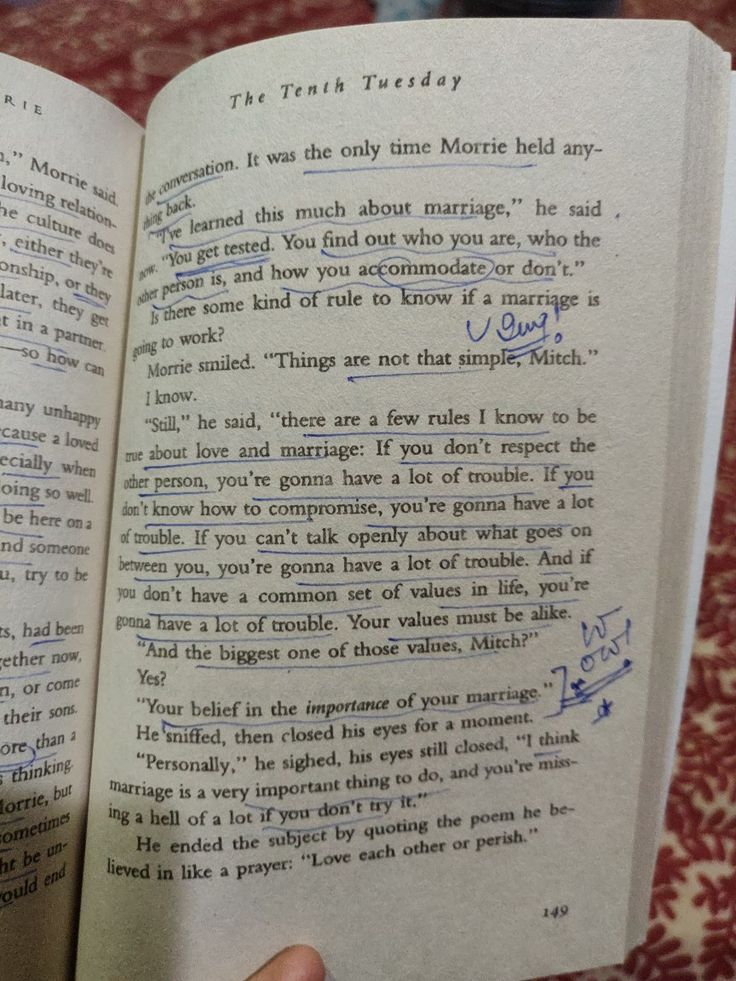 RIE
n," Morrie said.
loving relation-
he culture does
, either they're
onship, or they
later, they get
t in a partner.
—so how can
many unhappy
cause a loved
ecially when
oing so well.
be here on a
nd someone
u, try to be
ts, had been
gether now,
n, or come
their sons.
ore than a
s thinking.
Morrie, but
ometimes
ht be un-
ould end
The Tenth Tuesday
the conversation. It was the only time Morrie held any-
thing back.
"I've learned this much about marriage," he said
now. "You get tested. You find out who you are, who the
other person is, and how you accommodate or don't."
Is there some kind of rule to know if a marriage is
going to work?
Morrie smiled. "Things are not that simple, Mitch."
I know.
"Still," he said, "there are a few rules I know to be
true about love and marriage: If you don't respect the
other person, you're gonna have a lot of trouble. If you
don't know how to compromise, you're gonna have a lot
of trouble. If you can't talk openly about what goes on
between you, you're gonna have a lot of trouble. And if
you don't have a common set of values in life, you're
gonna have a lot of trouble. Your values must be alike.
"And the biggest one of those values, Mitch?"
Yes?
"Your belief in the importance of your marriage."
He sniffed, then closed his eyes for a moment.
"Personally," he sighed, his eyes still closed, "I think
marriage is a very important thing to do, and you're miss-
ing a hell of a lot if you don't try it."
He ended the subject by quoting the poem he be-
lieved in like a prayer: "Love each other or perish."
149